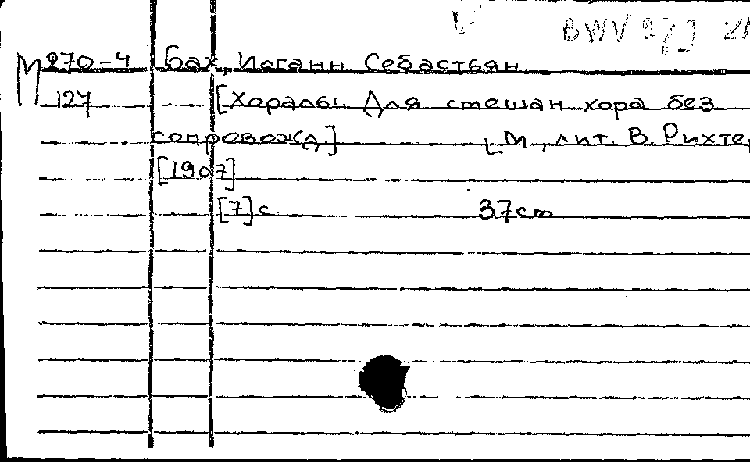 BWV
М 270-4 Бах, Иоганн Себастьян
127 [Хоралы. Для смешан хора без
сопровожд.] М., лит. В. Рихтер
[1907]
[7] с 37 см